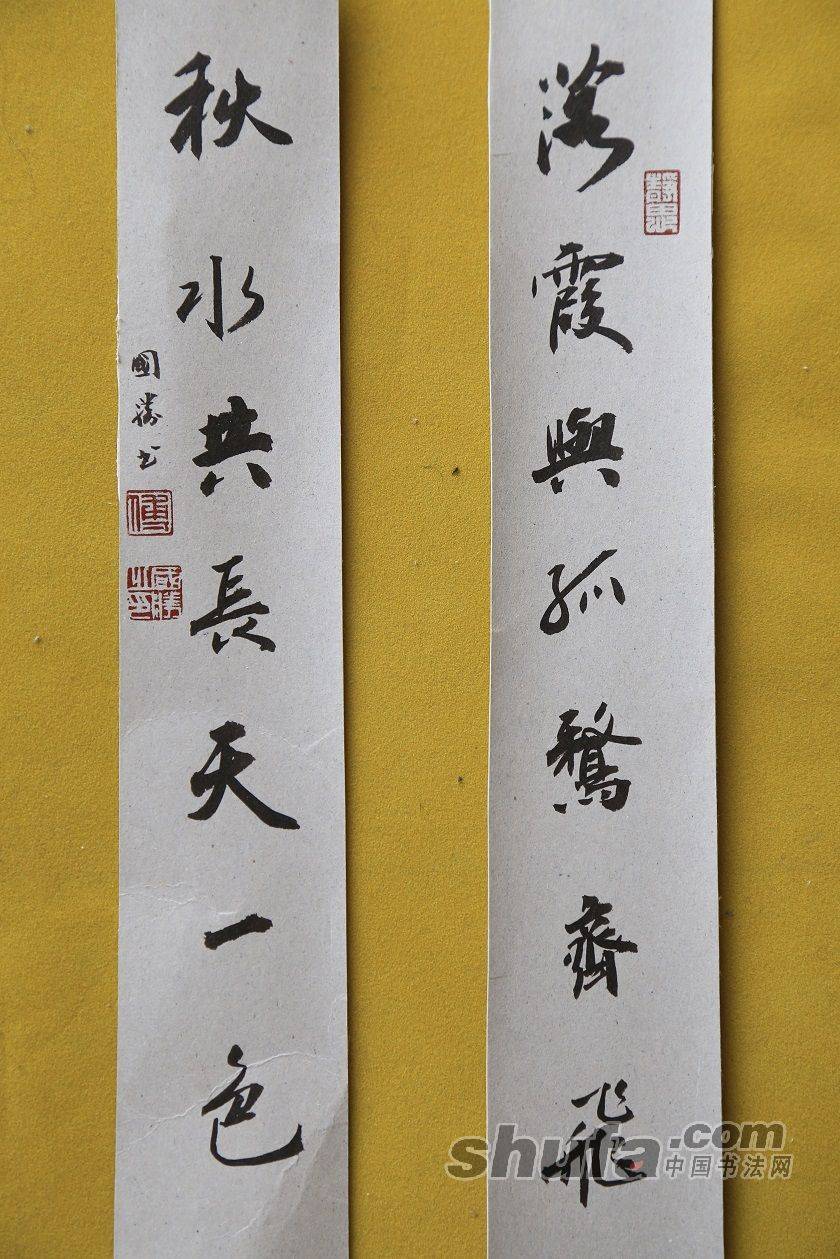 落霞與孤鶩齊飛
秋水共長天一色
國勝书
傅
國勝之印
shufa.com
中国书法网